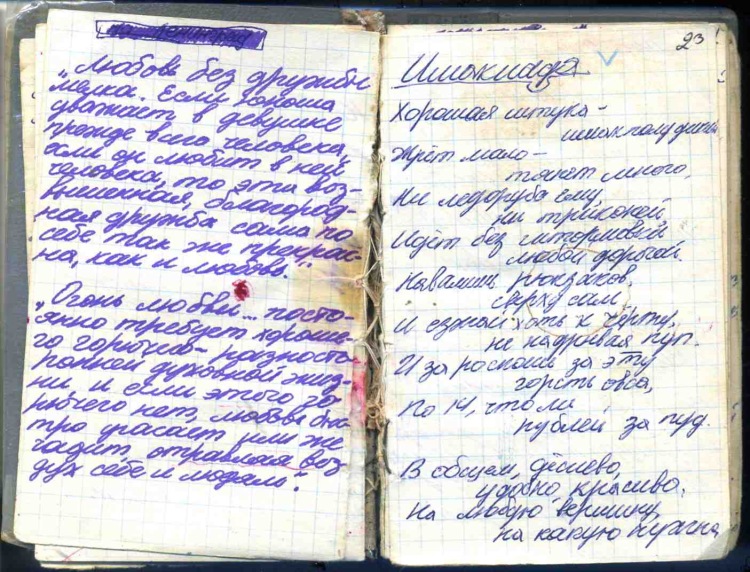 „Любовь без дружбы
мелка. Если юноша
уважает в девушке
прежде всего человека,
если он любит в ней
человека, то эта воз-
вышенная, благород-
ная дружба сама по
себе так же прекрас-
на, как и любовь."
„Огонь любви... посто-
янно требует хороше-
го горючего - разносто-
ронней духовной жиз-
ни. и если этого го-
рючего нет, любовь быс-
тро угасает или же
чадит, отравляя воз-
дух себе и людям".
23
Ишакиада
Хорошая штука -
ишак
Жрёт мало -
тянет много,
Ни ледоруба ему,
ни триконей
Идёт без штормовки
любой дорогой.
Навалишь рюкзаков,
сверху сам,
И езжай хоть к чёрту,
не надрывая пуп.
И за роскошь за эту
горсть овса,
По 14, что ли,
рублей за пуд.
В общем, дёшево,
удобно, красиво.
На любую вершину
на какую нужна